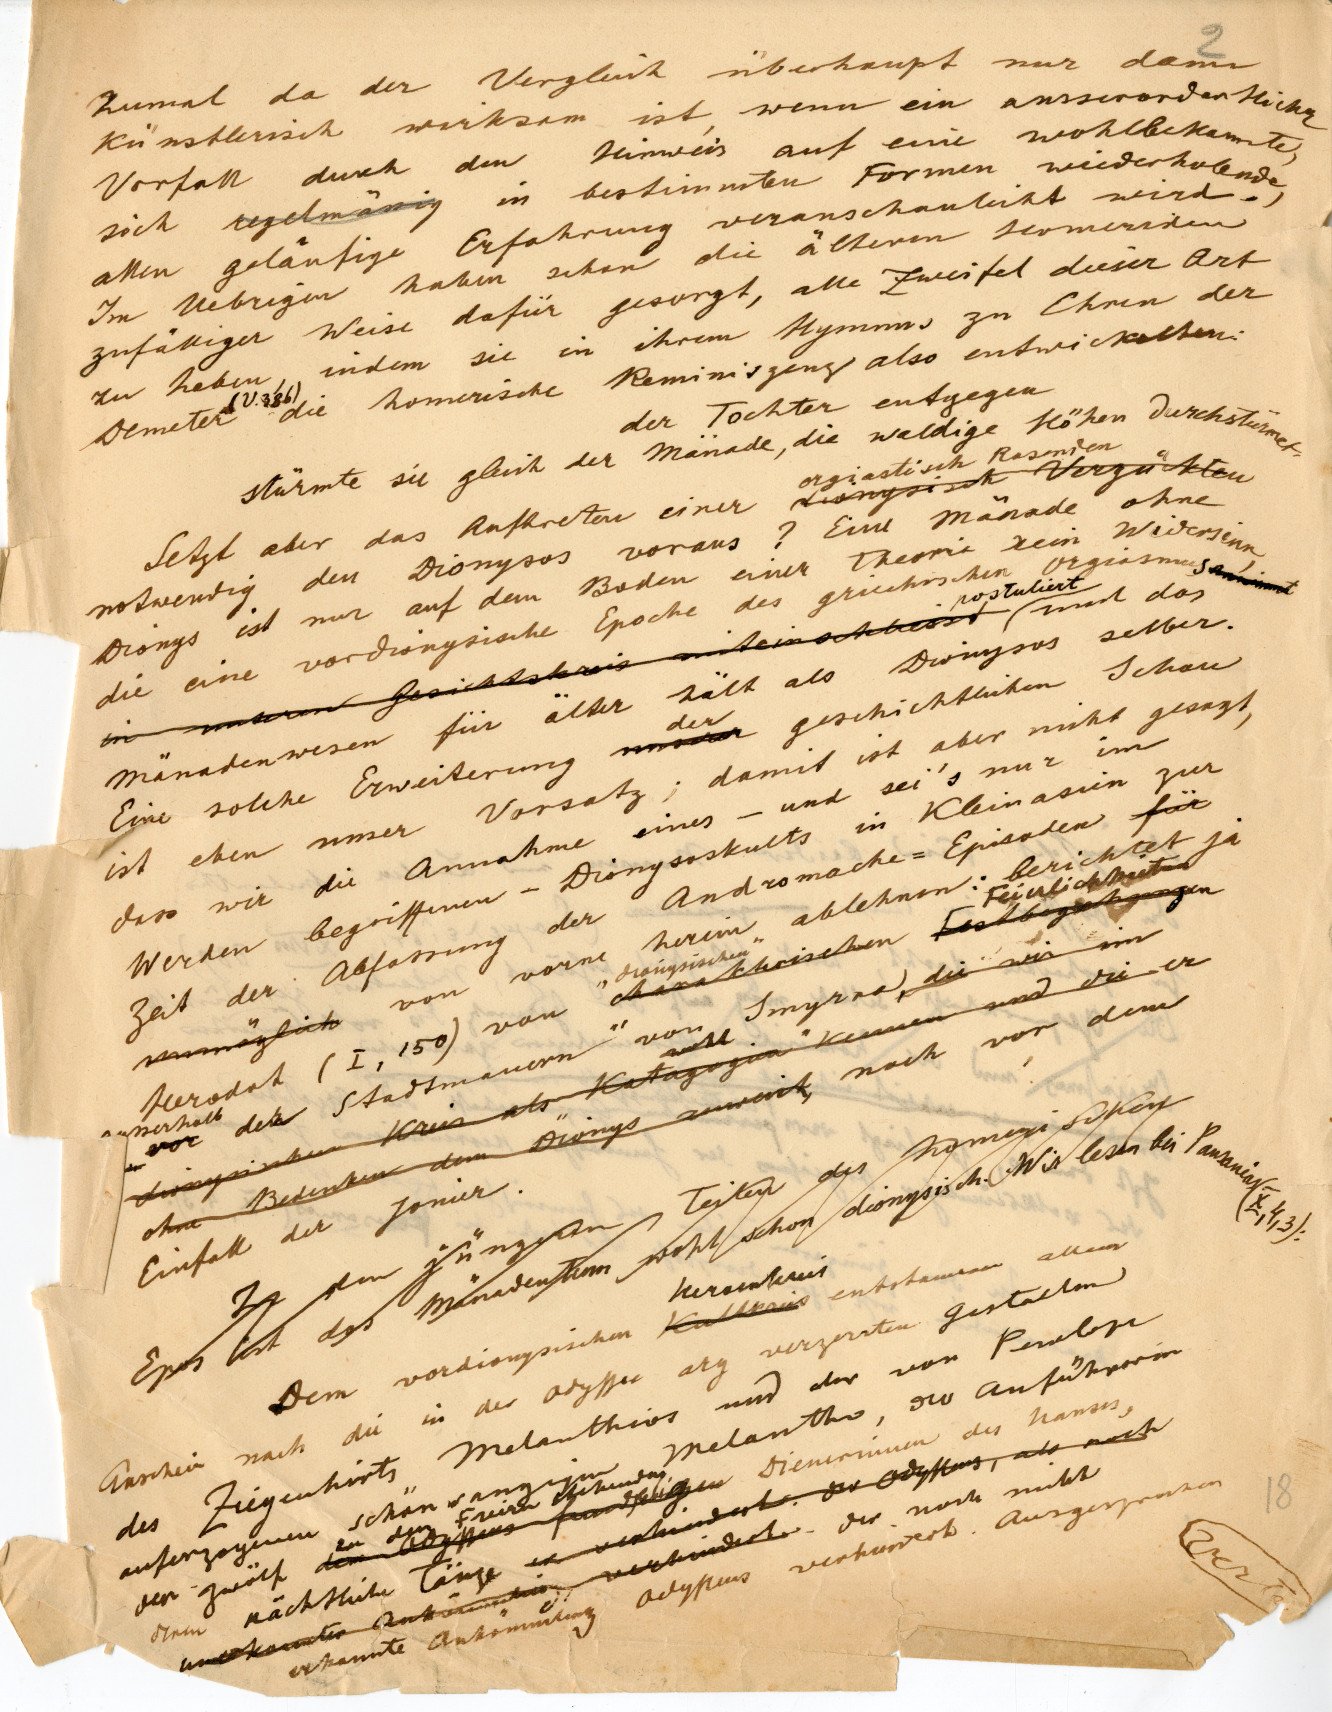 2
zumal da der Vergleich überhaupt nur dann
künstlerisch wirksam ist, wenn ein ausserordentlicher
Vorfall durch den Hinweis auf eine wohlbekannte,
sich regelmässig in bestimmten Formen wiederholende,
allen geläufige Erfahrung veranschaulicht wird.
Im Uebrigen haben schon die älteren Homeriden
zufälliger Weise dafür gesorgt, alle Zweifel dieser Art
zu heben, indem sie in ihrem Hymnus zu Ehren der
Demeter (V. 386) die homerische Reminiszenz also entwickelten:
der Tochter entgegen
stürmte sie gleich der Mänade, die waldige Höhen durchstürmet.
orgiastisch Rasenden
Setzt aber das Auftreten einer dionysisch Verzückten
notwendig den Dionysos voraus? Eine Mänade ohne
Dionys ist nur auf dem Boden einer Theorie kein Widersinn,
die eine vordionysische Epoche des griechischen Orgiasmus annimmt
postuliert
in unseren Gesichtskreis miteinschliesst und das
Mänadenwesen für älter hält als Dionysos selber.
der
Eine solche Erweiterung unserer geschichtlichen Schau
ist eben unser Vorsatz; damit ist aber nicht gesagt,
dass wir die Annahme eines – und sei's nur im
Werden begriffenen – Dionysoskults in Kleinasien zur
Zeit der Abfassung der Andromache=Episoden für
unmöglich von vorne herein ablehnen: berichtet ja
Feierlichkeiten
"dionysischen"
Herodot (I, 150) von Festbegehungen
ausserhalb
vor der Stadtmauern" von Smyrna, die wir im
wohl
dionysischen Kreis als Katagogia" kennen und die er
ohne Bedenken dem Dionys zuweist, noch vor dem
Einfall der Jonier.
In den jüngeren Teilen des homerischen
Epos ist das Mänadentum wohl schon dionysisch. Wir lesen bei Pausanias
(X, 4, 3):
Heroenkreis
Dem vordionysischen Kultkreis entstammen allem
Anschein nach die in der Odyssee arg verzerrten Gestalten
des Ziegenhirts Melanthios und der von Penelope
auferzogenen schönwangigen Melantho, der Anführerin
zu den Freiern stehenden
der zwölf dem Odysseus feindseligen Dienerinnen des Hauses,
deren nächtliche Tänze er verhindert. der Odysseus, als noch
unerkannter Ankömmling verhindert. der noch nicht
erkannte Ankömmling Odysseus verhindert. Ausgesprochen
verte
18